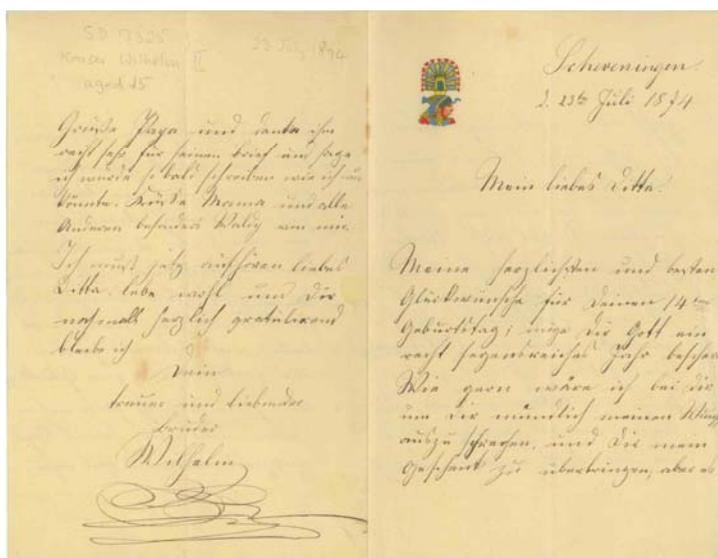 SD 17325
Kaiser Wilhelm II
aged 15
23 July 1874
Grüße Papa und danke ihm
recht sehr für seinen Brief und sage
ich würde sobald schreiben wie ich nur
könnte. Grüße Mama und alle
Anderen besonders Waldy von mir.
Ich muß jetzt aufhören liebes
Ditta. lebe wohl und Dir
nochmals herzlich gratulirend
bleibe ich
Dein
treuer und liebender
Bruder
Wilhelm
Scheveningen.
d. 23te Juli 1874
Mein liebes Ditta.
Meine herzlichsten und besten
Glückwünsche für Deinen 14ten
Geburtstag; möge Dir Gott ein
recht segensreiches Jahr
Wie gern wäre ich bei Dir
um Dir mündlich meinen
auszusprechen, und Dir mein
Geschenk zu überbringen, aber es